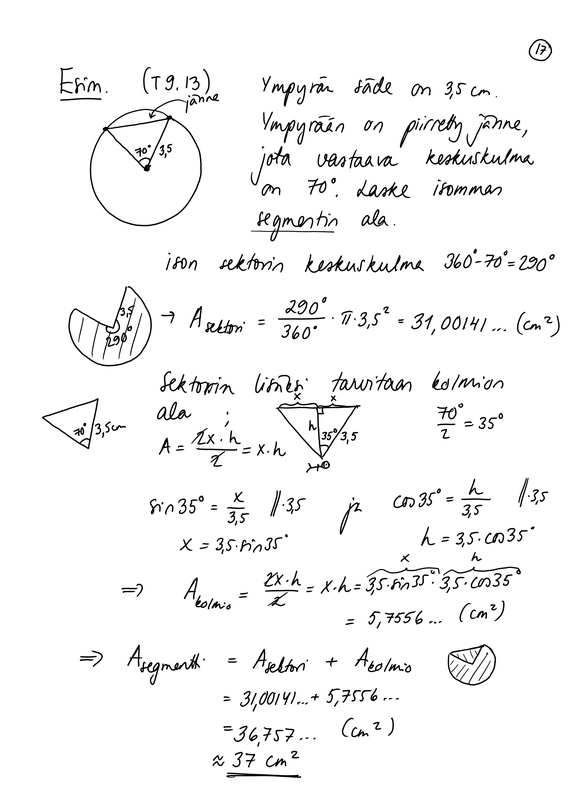 17
Esim. (T9.13)
jänne
70° 3,5
Ympyrän säde on 3,5 cm.
Ympyrään on piirretty jänne,
jota vastaava keskuskulma
on 70°. Laske isomman
segmentin ala.
ison sektorin keskuskulma 360°-70°=290°
3,5
290°
→ A sektori = 290°/360° · π·3,5² = 31,00141... (cm²)
Sektorin lisäksi tarvitaan kolmion
ala ;
70° 3,5cm
x x
h 35° 3,5
70°/2 = 35°
A = 2x·h/2 = x·h
sin35° = x/3,5 ||·3,5 ja cos35° = h/3,5 ||·3,5
x = 3,5·sin35° h = 3,5·cos35°
x h
⇒ A kolmio = 2x·h/2 = x·h = 3,5·sin35°·3,5·cos35°
= 5,7556... (cm²)
⇒ A segmentti = A sektori + A kolmio
= 31,00141...+5,7556...
= 36,757... (cm²)
≈ 37 cm²